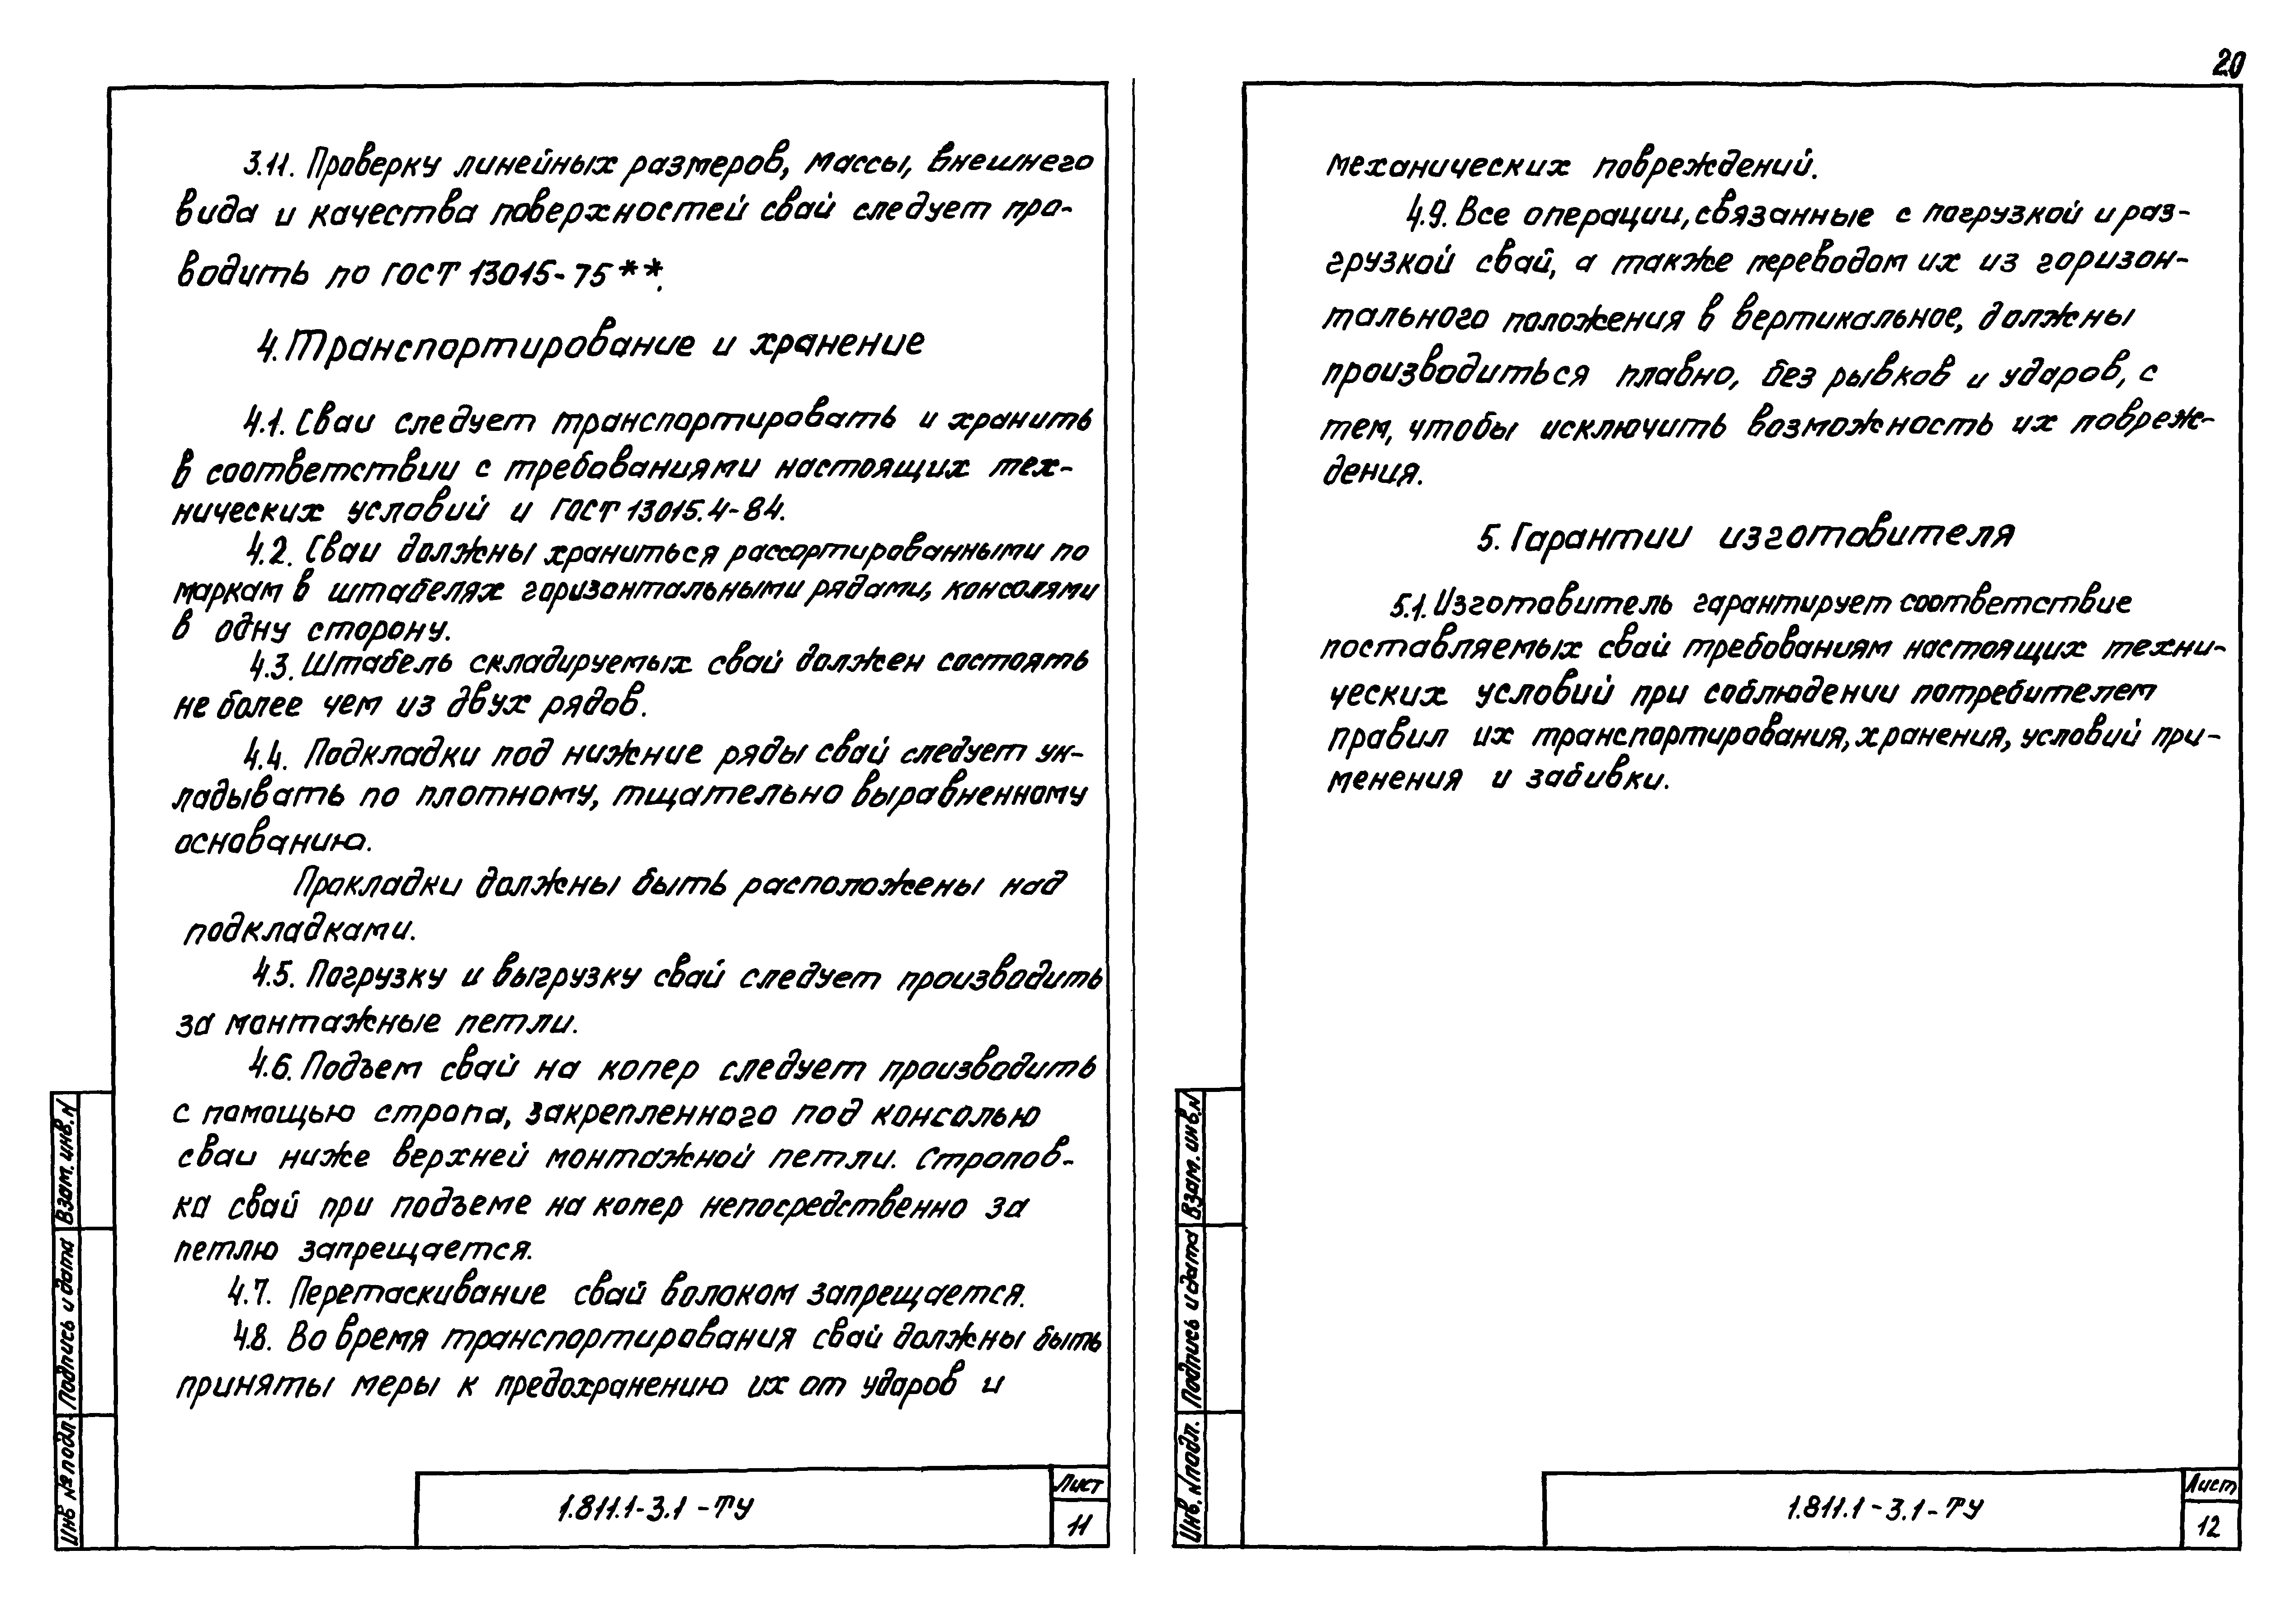 20
3.11. Проверку линейных размеров, массы, внешнего
вида и качества поверхностей свай следует про-
водить по ГОСТ 13015-75**.
4. Транспортирование и хранение
4.1. Сваи следует транспортировать и хранить
в соответствии с требованиями настоящих тех-
нических условий и ГОСТ 13015.4-84.
4.2. Сваи должны храниться рассортированными по
маркам в штабелях горизонтальными рядами, консолями
в одну сторону.
4.3. Штабель складируемых свай должен состоять
не более чем из двух рядов.
4.4. Подкладки под нижние ряды свай следует ук-
ладывать по плотному, тщательно выравненному
основанию.
Прокладки должны быть расположены над
подкладками.
4.5. Погрузку и выгрузку свай следует производить
за монтажные петли.
4.6. Подъем свай на копер следует производить
с помощью стропа, закрепленного под консолью
сваи ниже верхней монтажной петли. Строповка-
ка свай при подъеме на копер непосредственно за
петлю запрещается.
4.7. Перетаскивание свай волоком запрещается.
4.8. Во время транспортирования свай должны быть
приняты меры к предохранению их от ударов и
Взам. инв. N
Подпись и дата
Инв № подл.
1.811.1-3.1-ТУ
Лист
11
механических повреждений.
4.9. Все операции, связанные с погрузкой и раз-
грузкой свай, а также переводом их из горизон-
тального положения в вертикальное, должны
производиться плавно, без рывков и ударов, с
тем, чтобы исключить возможность их повреж-
дения.
5. Гарантии изготовителя
5.1. Изготовитель гарантирует соответствие
поставляемых свай требованиям настоящих техни-
ческих условий при соблюдении потребителем
правил их транспортирования, хранения, условий при-
менения и забивки.
Взам. инв. N
Подпись и дата
Инв. N подл.
1.811.1-3.1-ТУ
Лист
12